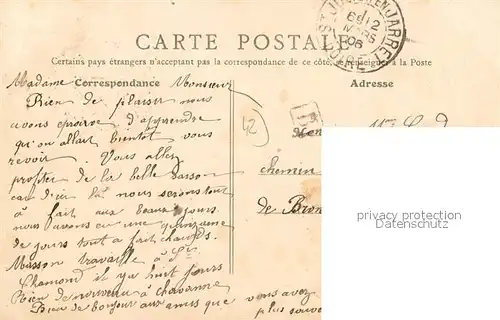 CARTE POSTALE
Certains pays étrangers n'acceptant pas la correspondance de ce côté, se renseigner à la Poste
Correspondance
Adresse
Madame Monsieur
Bien de plaisir nous
avons éprouvé d'apprendre
qu'on allait bientôt vous
revoir. Vous allez
profiter de la belle saison
car d'ici là nous serons tout
à fait aux beaux jours
nous avons eu une quinzaine
de jours tout à fait chauds.
Masson travaille à St
Chamond il y a huit jours
Rien de nouveau à chavanne
Bien de bonjour aux amis que vous avez
plus souve
42
chemin
de Bron
privacy protection
VARIAGE.COM